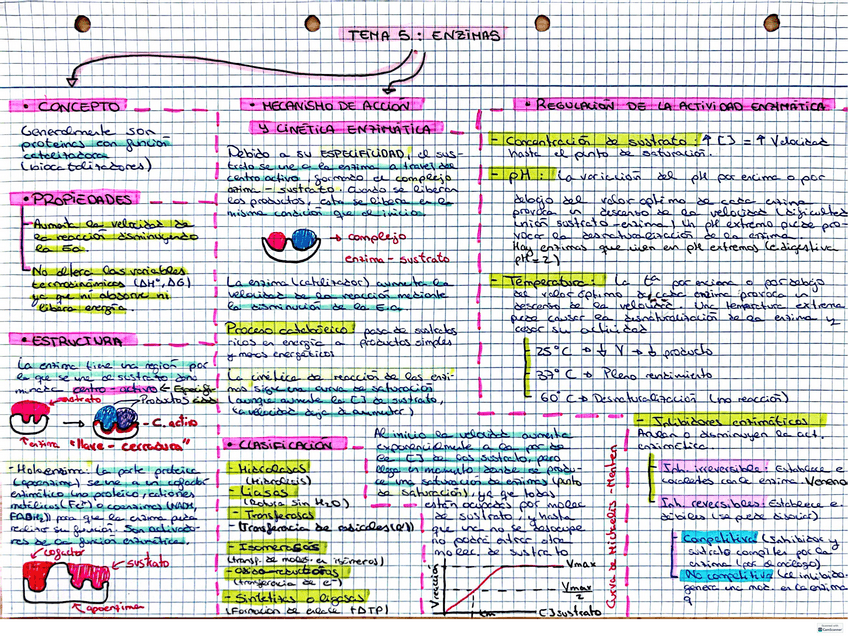 TEMA 5: ENZIMAS
• CONCEPTO
Generalmente son
proteínas con función
catalizadora
(biocatalizadores)
• PROPIEDADES
- Aumenta la velocidad de
la reacción disminuyendo
la Ea.
- No altera las variables
termodinámicas (ΔH°, ΔG)
ya que ni absorbe ni
libera energía.
• ESTRUCTURA
La enzima tiene una región por
la que se une al sustrato
centro-activo
sustrato
Productos
C. activo
enzima "llave-cerradura"
- Holoenzima: La parte proteica
(apoenzima) se une a un cofactor
enzimático no proteico, cationes
metálicos (Fe²⁺) o coenzimas (NADH,
FADH₂) para que la enzima pueda
realizar su función. Son
de la función enzimática.
cofactor
sustrato
apoenzima
• MECANISMO DE ACCIÓN
Y CINÉTICA ENZIMÁTICA
Debido a su ESPECIFICIDAD, el sus-
trato se une a la enzima a través del
centro activo, formando el complejo
enzima-sustrato. Cuando se liberan
los productos, esta se libera en la
misma condición que al inicio.
→ complejo
enzima-sustrato
La enzima (catalizador) aumenta la
velocidad de la reacción mediante
la disminución de la Ea.
Proceso catabólico: pasa de sustratos
ricos en energía a productos simples
y menos energéticos
La cinética de reacción de las enzi-
mas sigue una curva de saturación
(aunque aumente la [] sustrato,
la velocidad deja de aumentar)
• CLASIFICACIÓN
- Hidrolasas
(Hidrólisis)
- Liasas
(Rotura sin H₂O)
- Transferasas
(Transferencia de radicales)
- Isomerasas
(transf. de moléc. en isómeros)
- Óxido-reductasas
(transferencia de e⁻)
- Sintetasas o ligasas
(Formación de enlace +ATP)
Al inicio la velocidad aumenta
exponencialmente a la par de
la [] del sustrato, pero
llega un momento donde se produ-
ce una saturación de enzimas (punto
de saturación), ya que todas
están ocupadas por moléc.
de sustrato y hasta
que una no se desocupe
no podrá entrar otra
moléc. de sustrato
V reacción
Vmax
Vmax
2
km
[] sustrato
Curva de Michaelis-Menten
• REGULACIÓN DE LA ACTIVIDAD ENZIMÁTICA
- Concentración de sustrato: ↑ [] = ↑ Velocidad
hasta el punto de saturación.
- pH: La variación del pH por encima o por
debajo del valor óptimo de cada enzima
provoca un descenso de la velocidad (dificultad
unión sustrato-enzima). Un pH extremo puede pro-
vocar la desnaturalización de la enzima.
Hay enzimas que viven en pH extremos (e. digestiva
pH=2)
- Temperatura: La tª por encima o por debajo
del valor óptimo de cada enzima provoca un
descenso de la velocidad. Una temperatura extrema
puede causar la desnaturalización de la enzima y
cesar su actividad
25°C → ↓ V → ↓ producto
37°C → Pleno rendimiento
60°C → Desnaturalización (no reacción)
- Inhibidores enzimáticos
Anulan o disminuyen la act.
enzimática.
Inh. irreversible: Establece e
covalentes con la enzima Veneno
Inh. reversibles: Establece e
débiles (se puede disociar)
Competitiva (Inhibidor y
sustrato compiten por la
enzima
No competitiva (el inhibido
genera una mod. en la enzima